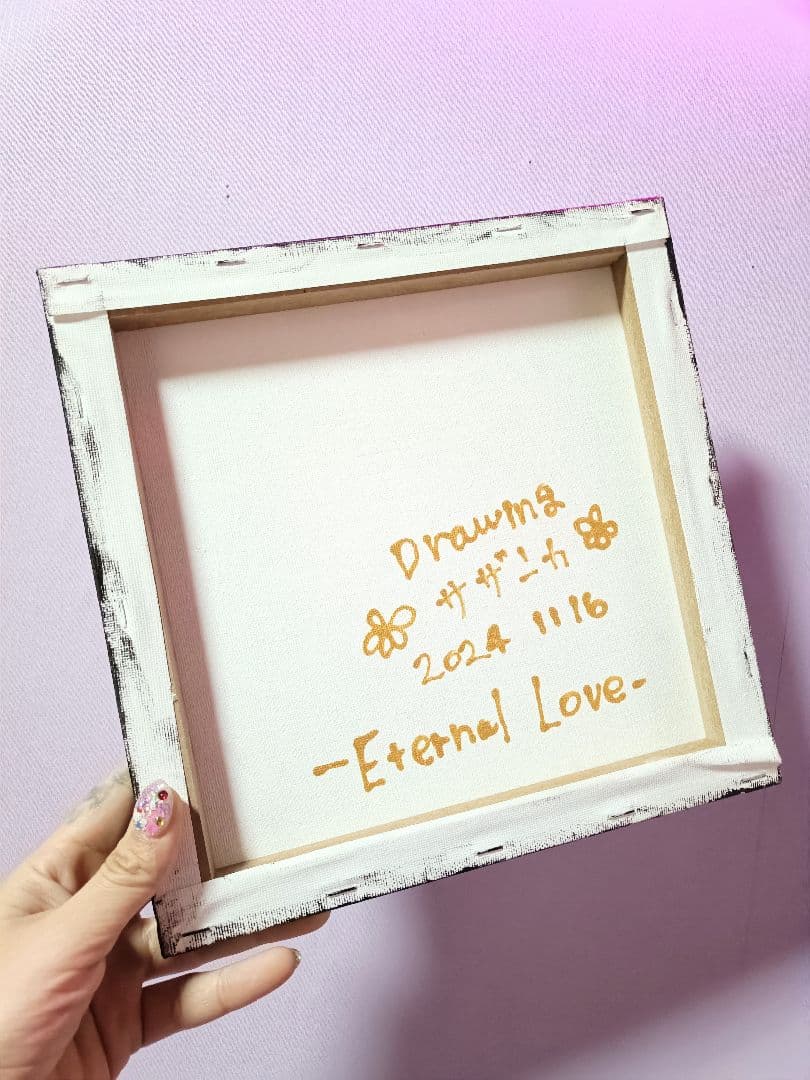 Drawing
サザンカ
2024 11 16
-Eternal Love-